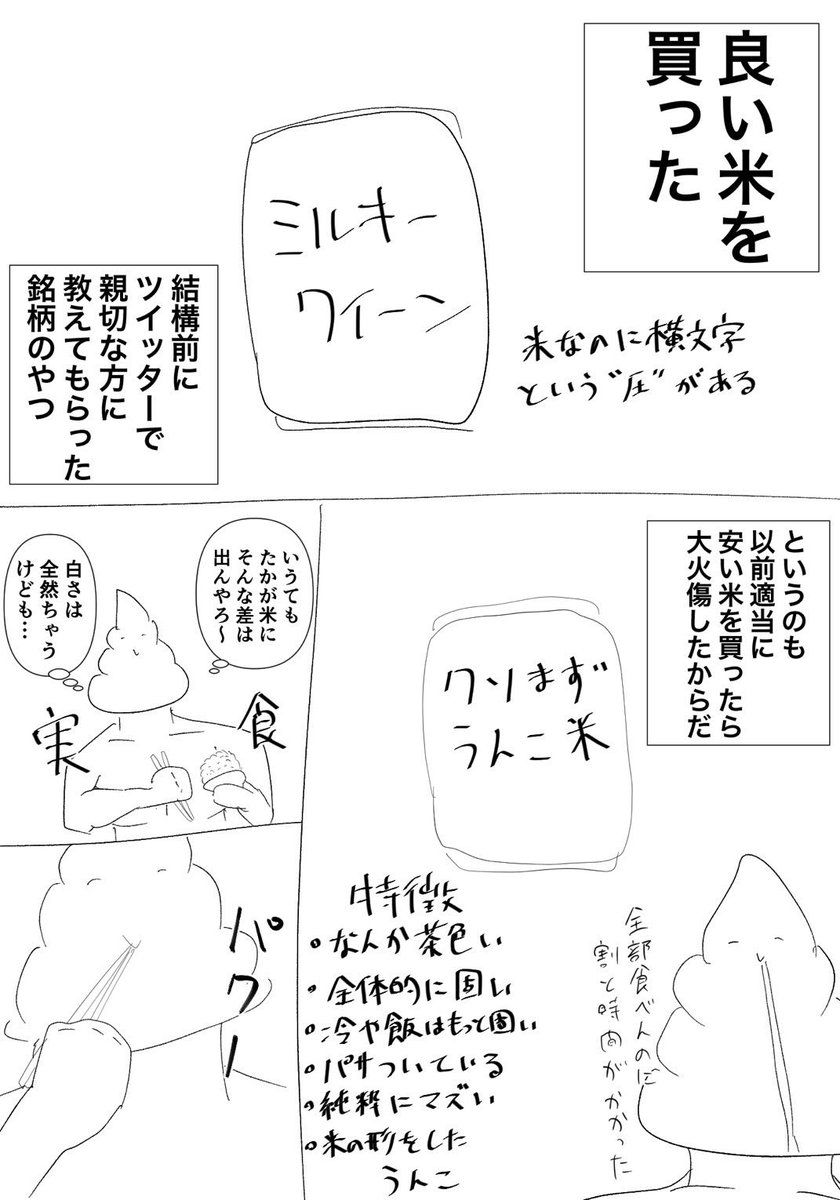 良い米を
買った
ミルキー
クイーン
米なのに横文字
という"圧"がある
結構前に
ツイッターで
親切な方に
教えてもらった
銘柄のやつ
というのも
以前適当に
安い米を買ったら
大火傷したからだ
クソまず
うんこ米
特徴
・なんか茶色い
・全体的に固い
・冷や飯はもっと固い
・パサついている
・純粋にマズい
・米の形をした
うんこ
全部食べんのに
割と時間がかかった
いうても
たかが米に
そんな差は
出んやろ〜
白さは
全然ちゃう
けども…
実食
パクー